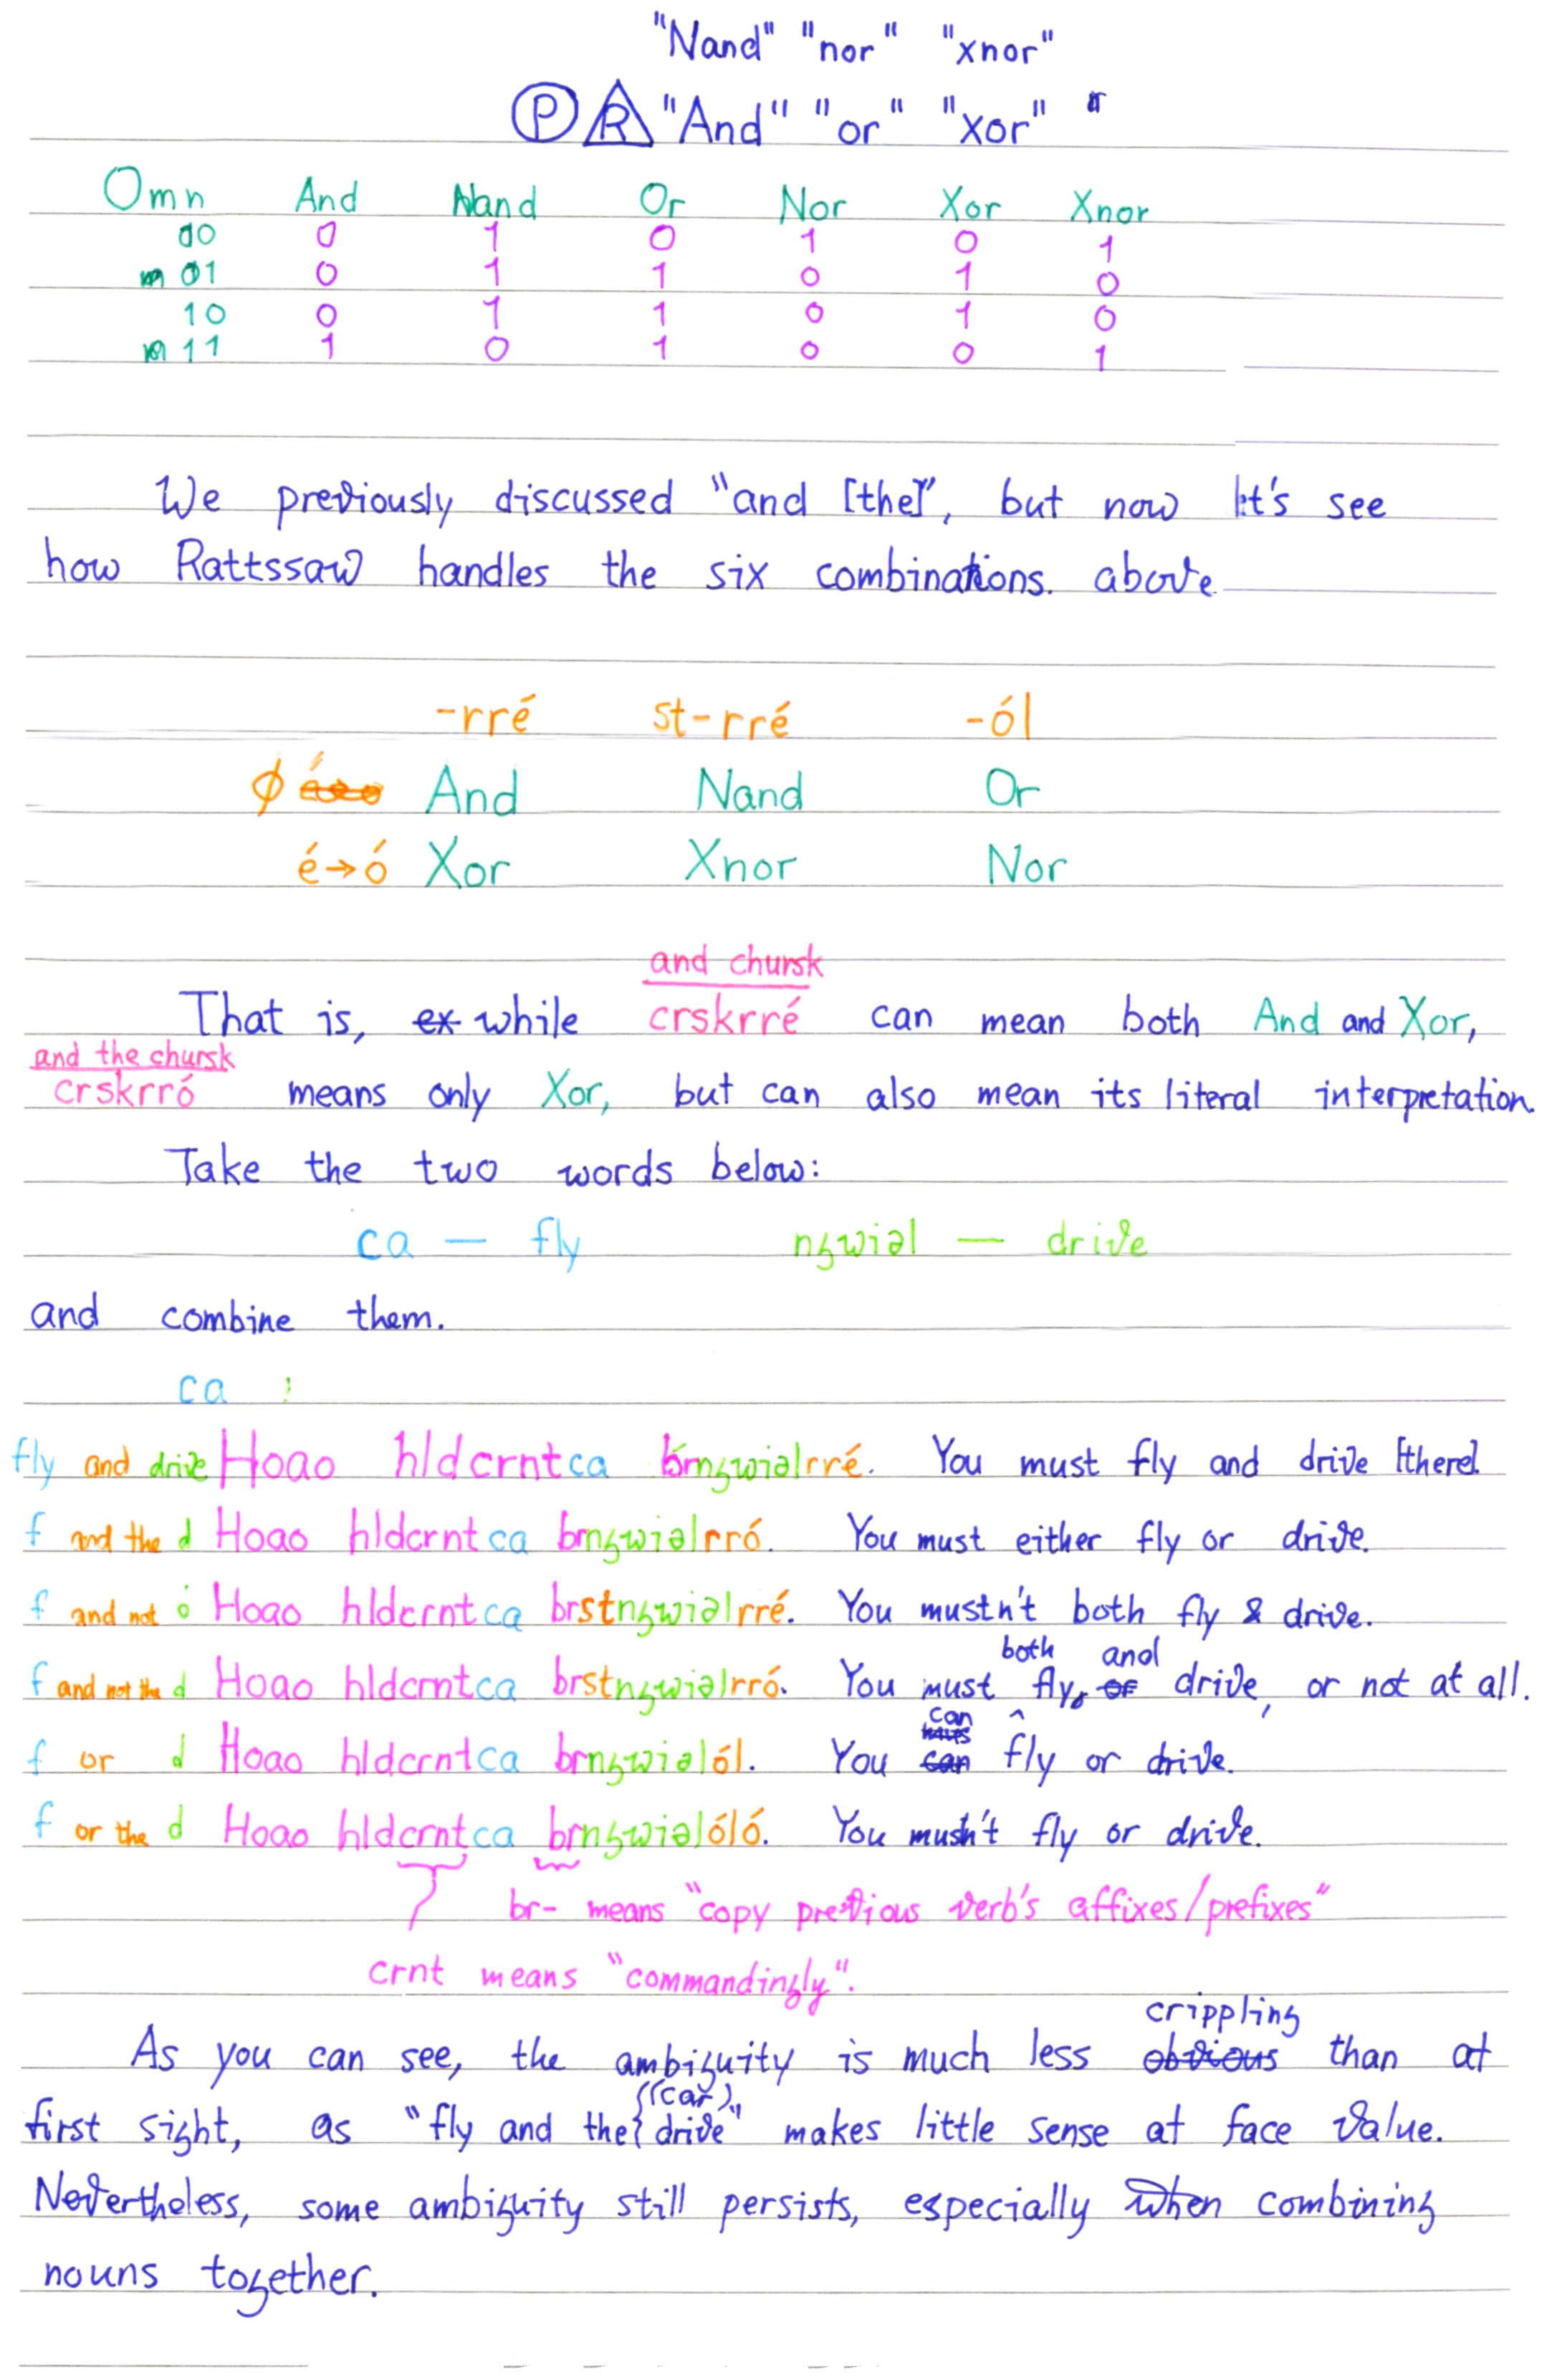 "Nand" "nor" "xnor"
P R "And" "or" "xor"
Omn And Nand Or Nor Xor Xnor
00 0 1 0 1 0 1
01 0 1 1 0 1 0
10 0 1 1 0 1 0
11 1 0 1 0 0 1
We previously discussed "and [the]", but now let's see
how Rattssaw handles the six combinations. above
-rré st-rré -ól
ϕ And Nand Or
é→ó Xor Xnor Nor
and chursk
That is, ex while crskrré can mean both And and Xor,
and the chursk
crskrró means only Xor, but can also mean its literal interpretation.
Take the two words below:
ca — fly ngwiəl — drive
and combine them.
ca
fly and drive Hoao hldcrntca brngwiəlrré. You must fly and drive [there].
f and the d Hoao hldcrntca brngwiəlrró. You must either fly or drive.
f and not Hoao hldcrntca brstngwiəlrré. You mustn't both fly & drive.
both and
f and not the d Hoao hldcrntca brstngwiəlrró. You must fly, or drive, or not at all.
can
f or d Hoao hldcrntca brngwiəlól. You can fly or drive.
f or the d Hoao hldcrntca brngwiəlóló. You mustn't fly or drive.
br- means "copy previous verb's affixes/prefixes"
crnt means "commandingly".
crippling
As you can see, the ambiguity is much less obvious than at
((car)
first sight, as "fly and the { drive" makes little sense at face value.
Nevertheless, some ambiguity still persists, especially when combining
nouns together.